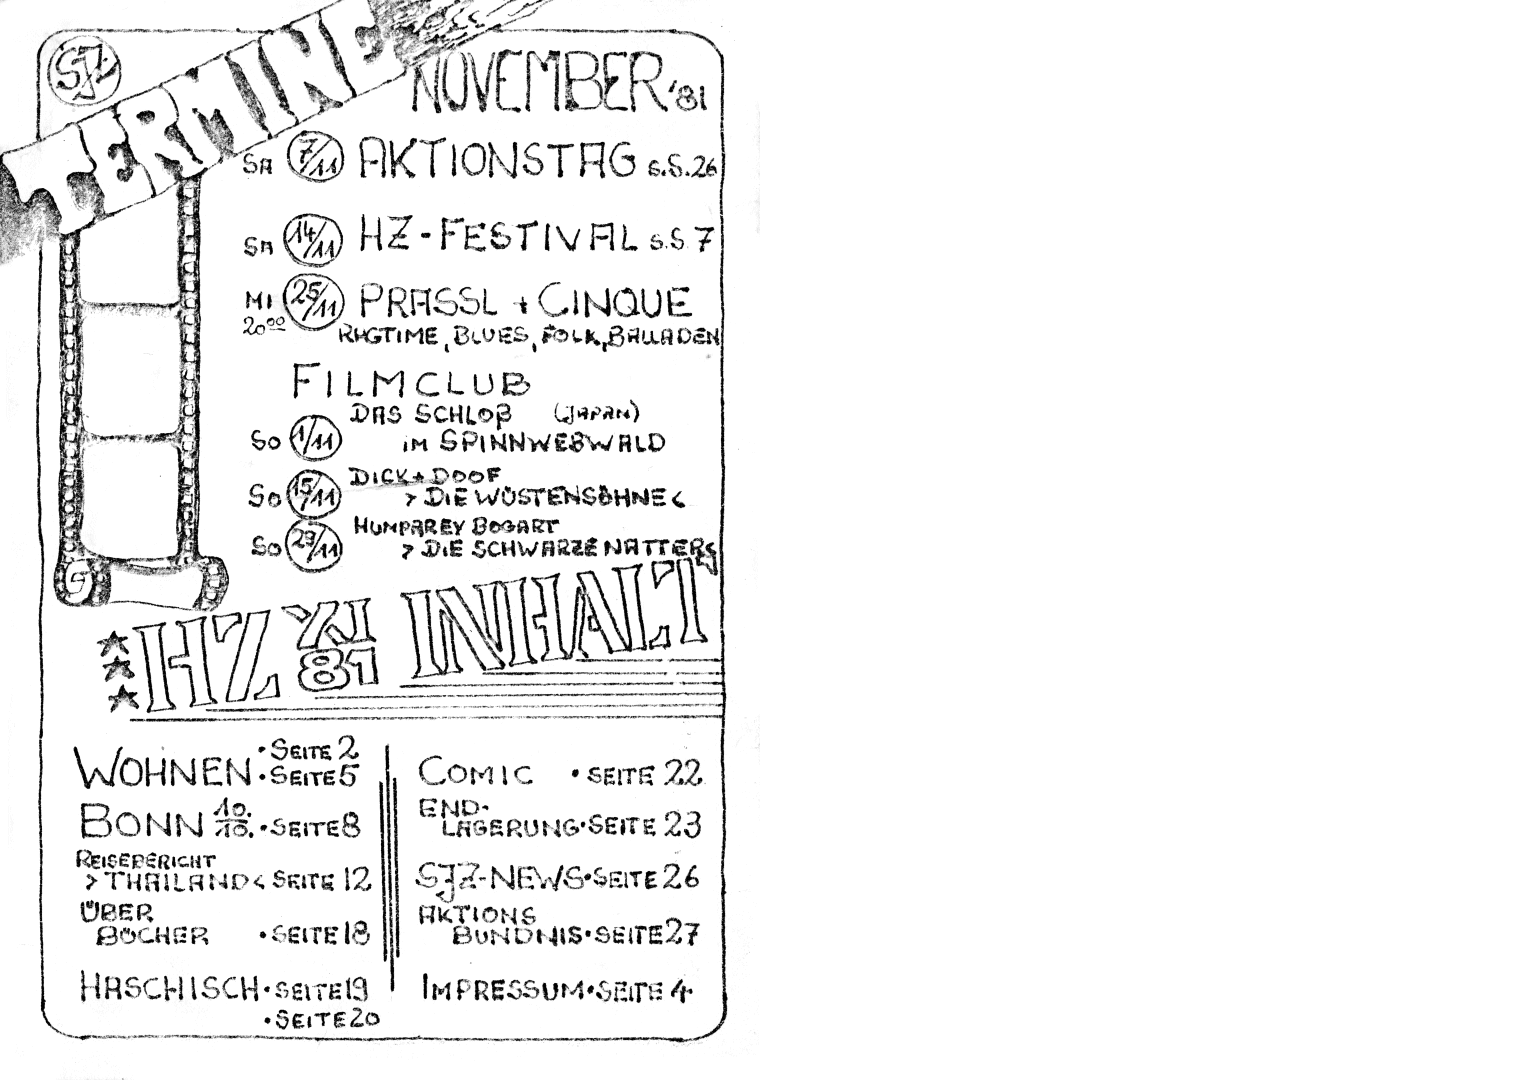 SJZ
TERMINE
NOVEMBER '81
SA 7/11 AKTIONSTAG s.S.26
SA 14/11 HZ-FESTIVAL s.S.7
MI 20⁰⁰ 25/11 PRASSL + CINQUE
RAGTIME, BLUES, FOLK, BALLADEN
FILMCLUB
DAS SCHLOß (JAPAN)
SO 1/11 IM SPINNWEBWALD
DICK + DOOF
SO 15/11 > DIE WÜSTENSÖHNE <
HUMPHREY BOGART
SO 29/11 > DIE SCHWARZE NATTER <
HZ XI 81 INHALT
WOHNEN • SEITE 2
• SEITE 5
BONN 10. 10. • SEITE 8
REISEBERICHT
> THAILAND < SEITE 12
ÜBER
BÜCHER • SEITE 18
HASCHISCH • SEITE 19
• SEITE 20
COMIC • SEITE 22
END-
LAGERUNG • SEITE 23
SJZ-NEWS • SEITE 26
AKTIONS
BÜNDNIS • SEITE 27
IMPRESSUM • SEITE 4